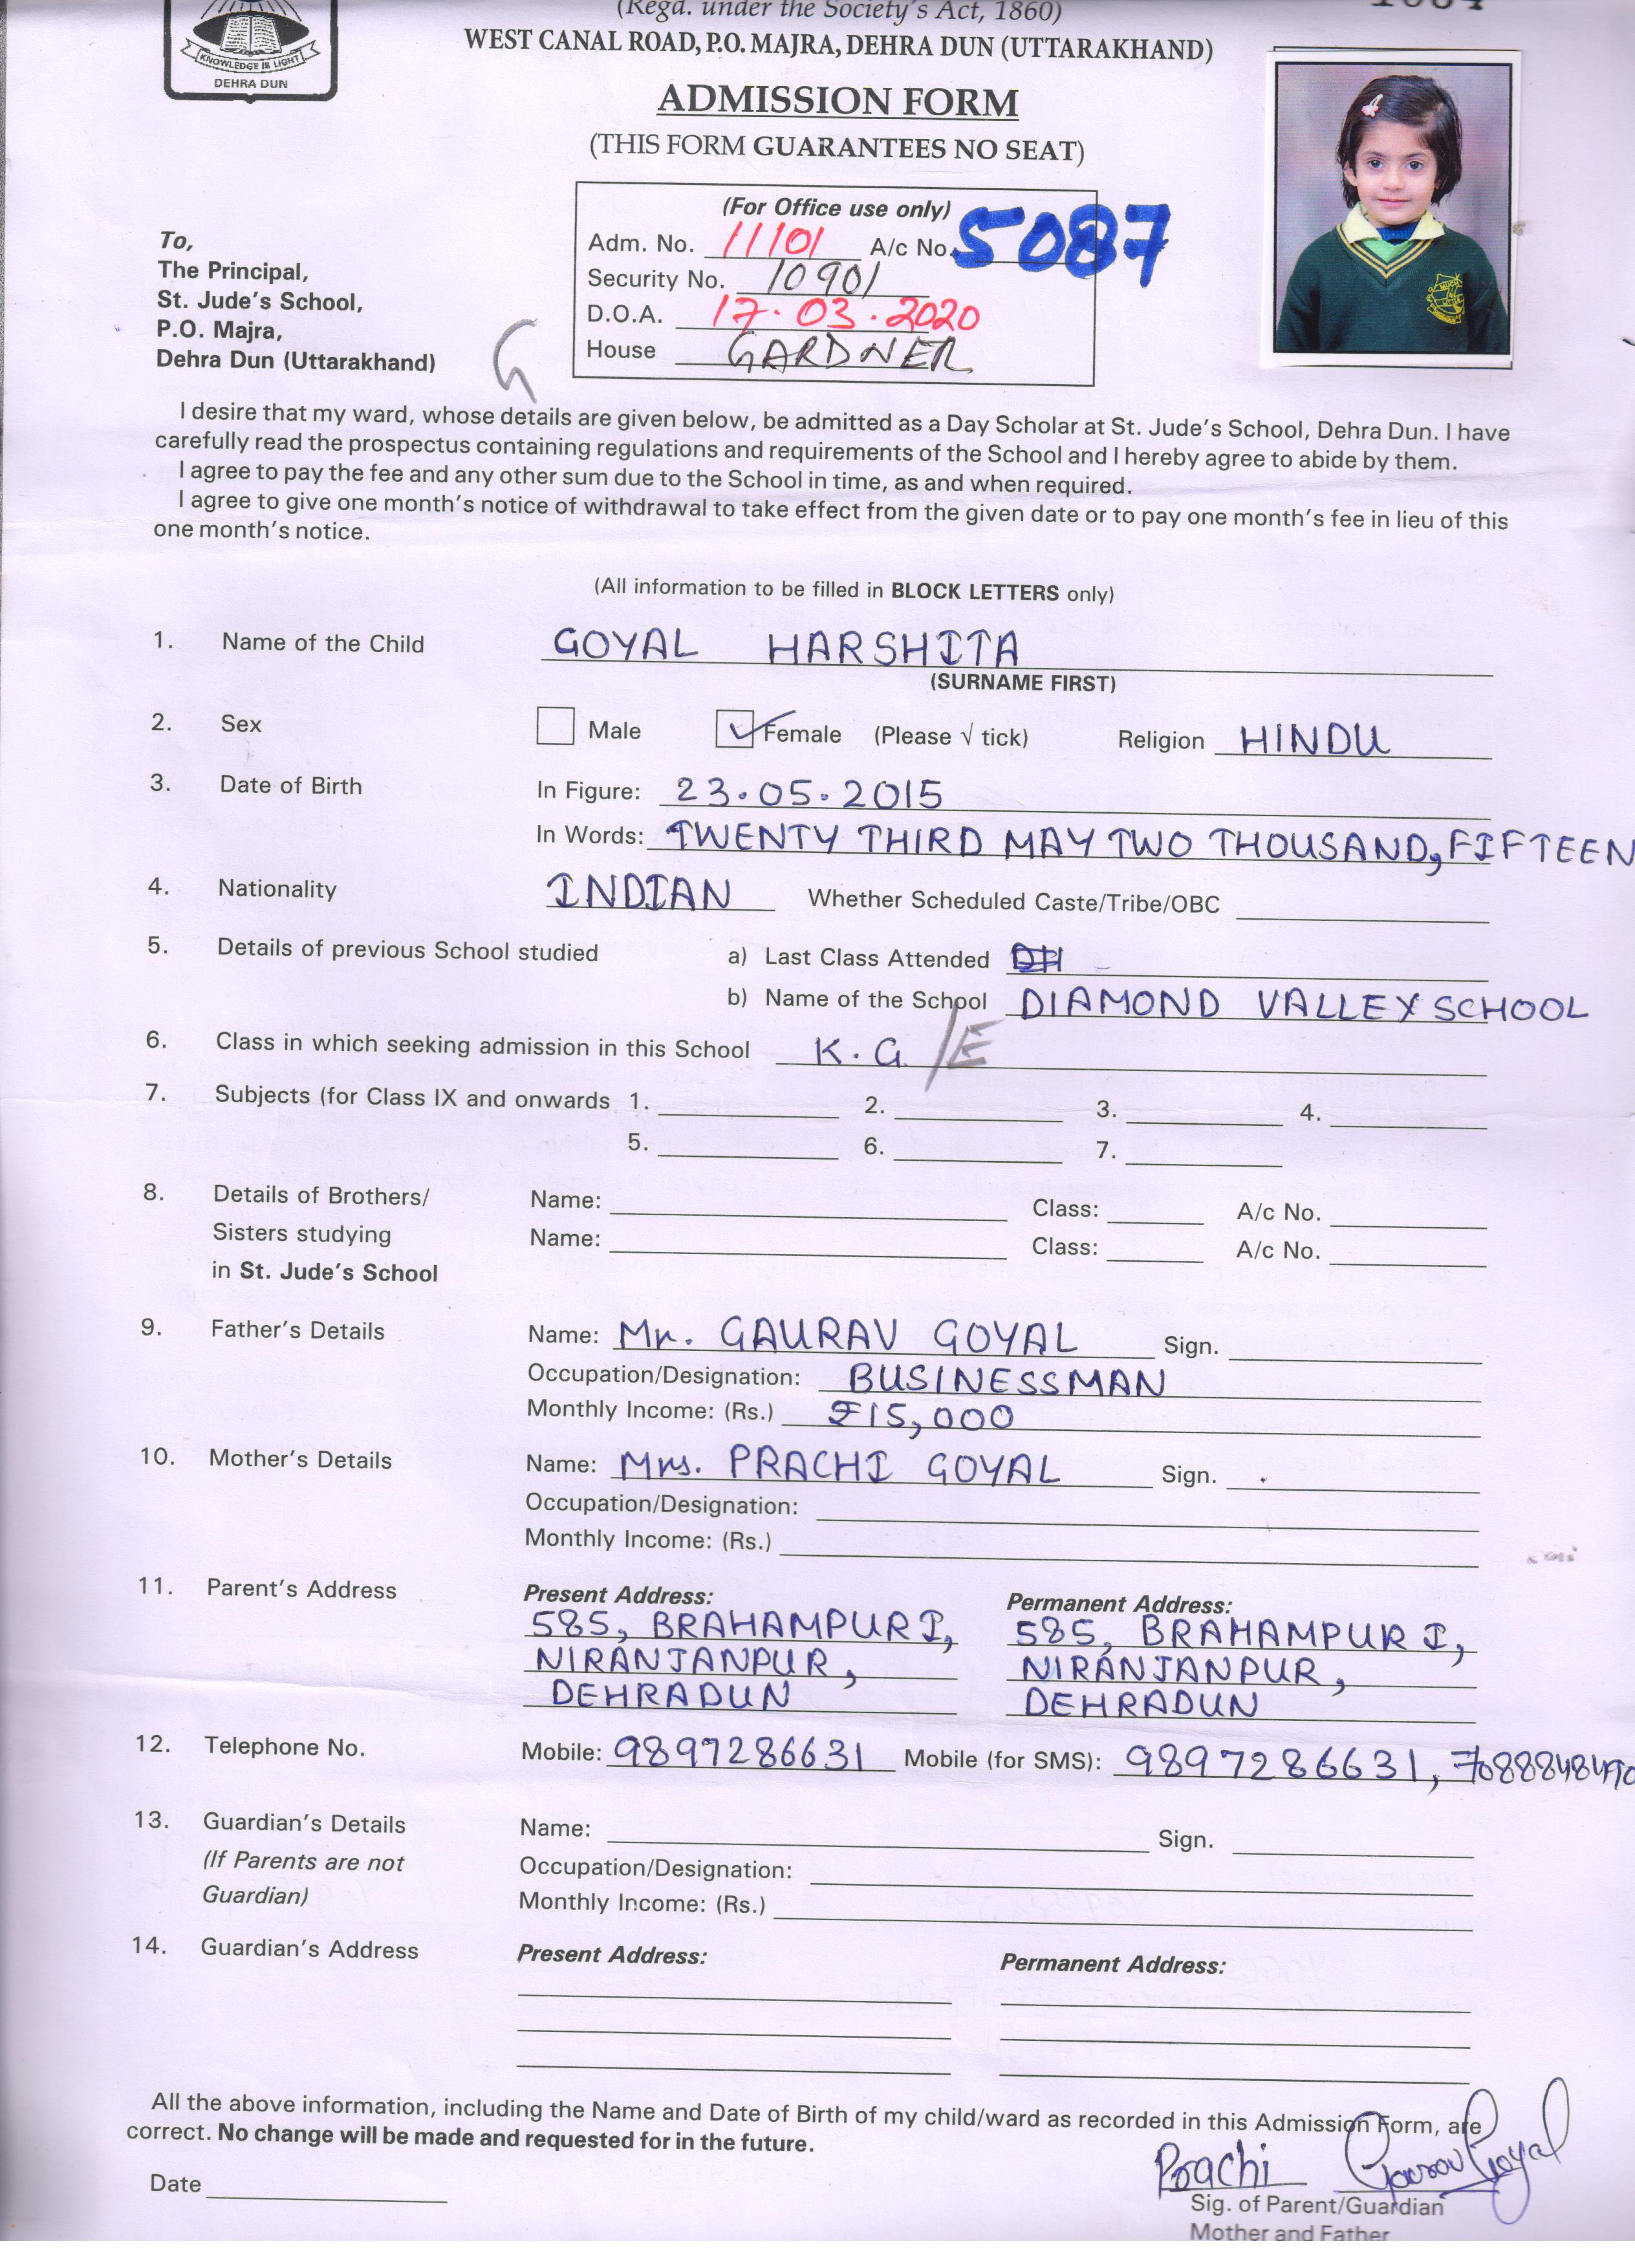 (Regd. under the Society's Act, 1860)
WEST CANAL ROAD, P.O. MAJRA, DEHRA DUN (UTTARAKHAND)
KNOWLEDGE IS LIGHT
DEHRA DUN
ADMISSION FORM
(THIS FORM GUARANTEES NO SEAT)
(For Office use only)
Adm. No. 11101 A/c No. 5087
Security No. 10901
D.O.A. 17.03.2020
House GARDNER
To,
The Principal,
St. Jude's School,
P.O. Majra,
Dehra Dun (Uttarakhand)
G
I desire that my ward, whose details are given below, be admitted as a Day Scholar at St. Jude's School, Dehra Dun. I have
carefully read the prospectus containing regulations and requirements of the School and I hereby agree to abide by them.
I agree to pay the fee and any other sum due to the School in time, as and when required.
I agree to give one month's notice of withdrawal to take effect from the given date or to pay one month's fee in lieu of this
one month's notice.
(All information to be filled in BLOCK LETTERS only)
1. Name of the Child GOYAL HARSHITA
(SURNAME FIRST)
2. Sex Male ✓ Female (Please √ tick) Religion HINDU
3. Date of Birth In Figure: 23.05.2015
In Words: TWENTY THIRD MAY TWO THOUSAND, FIFTEEN
4. Nationality INDIAN Whether Scheduled Caste/Tribe/OBC
5. Details of previous School studied a) Last Class Attended
b) Name of the School DIAMOND VALLEY SCHOOL
6. Class in which seeking admission in this School K.G. /E
7. Subjects (for Class IX and onwards 1. 2. 3. 4.
5. 6. 7.
8. Details of Brothers/ Name: Class: A/c No.
Sisters studying Name: Class: A/c No.
in St. Jude's School
9. Father's Details Name: Mr. GAURAV GOYAL Sign.
Occupation/Designation: BUSINESSMAN
Monthly Income: (Rs.) ₹15,000
10. Mother's Details Name: Mrs. PRACHI GOYAL Sign.
Occupation/Designation:
Monthly Income: (Rs.)
11. Parent's Address Present Address: Permanent Address:
585, BRAHAMPURI, 585, BRAHAMPURI,
NIRANJANPUR, NIRANJANPUR,
DEHRADUN DEHRADUN
12. Telephone No. Mobile: 9897286631 Mobile (for SMS): 9897286631,
13. Guardian's Details Name: Sign.
(If Parents are not Occupation/Designation:
Guardian) Monthly Income: (Rs.)
14. Guardian's Address Present Address: Permanent Address:
All the above information, including the Name and Date of Birth of my child/ward as recorded in this Admission Form, are
correct. No change will be made and requested for in the future.
Prachi Gaurav Goyal
Date
Sig. of Parent/Guardian
Mother and Father